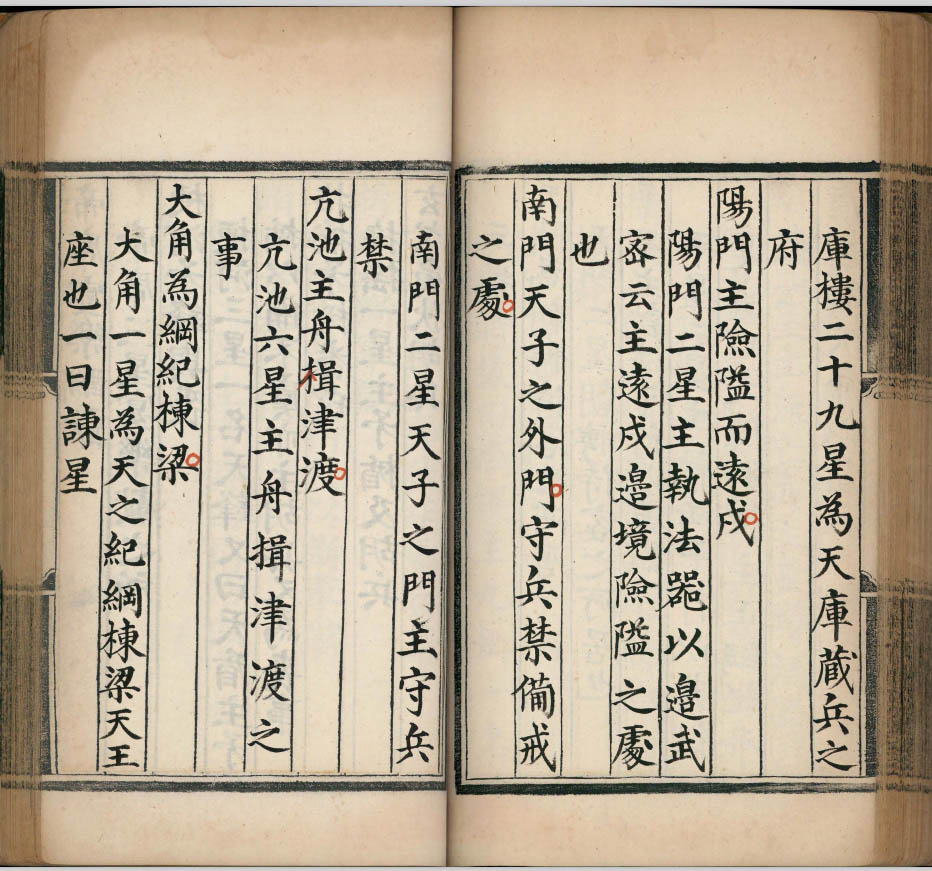 庫樓二十九星為天庫藏兵之
府
陽門主險隘而遠戍
陽門二星主執法器以邉武
宻云主遠戍邉境險隘之䖏
也
南門天子之外門守兵禁備戒
之䖏
南門二星天子之門主守兵
禁
亢池主舟揖津渡
亢池六星主舟揖津渡之
事
大角為綱紀棟梁
大角一星為天之紀綱棟梁天王
座也一曰諫星